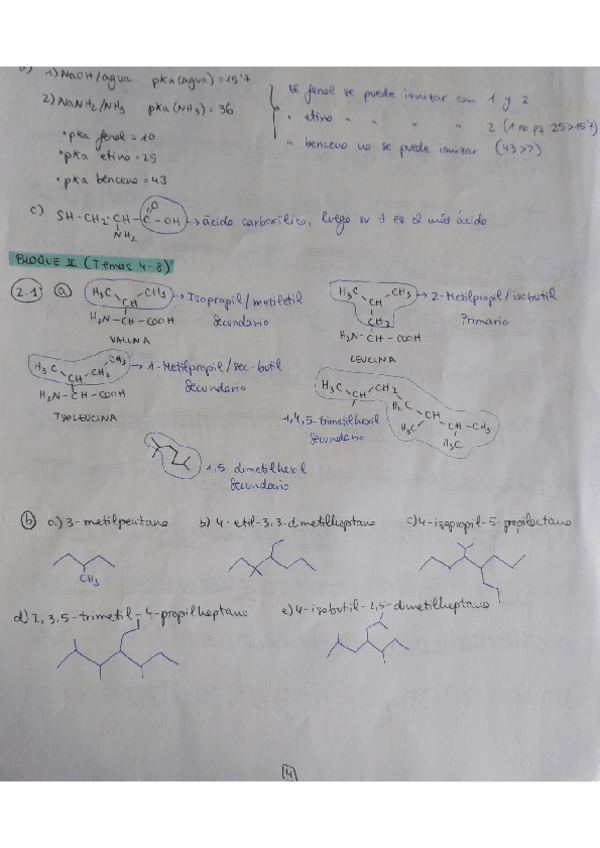 1) NaOH/agua pka(agua)=15'7
2) NaNH2/NH3 pka(NH3)=36
• pka fenol = 10
• pka etino = 25
• pka benceno = 43
El fenol se puede ionizar con 1 y 2
" etino " " " " 2 (1 no pq 25>15'7)
" benceno no se puede ionizar (43>>)
c) SH-CH2-CH-C-OH → ácido carboxílico, luego su H es el más ácido
O
NH2
BLOQUE II (Temas 4-8)
2.1 a
H3C CH3 → Isopropil/metiletil
CH Secundario
H2N-CH-COOH
VALINA
H3C CH3 → 2-Metilpropil/isobutil
CH Primario
CH2
H2N-CH-COOH
LEUCINA
H3C CH CH2 CH3 → 1-Metilpropil/sec-butil
Secundario
H2N-CH-COOH
ISOLEUCINA
H3C CH CH2
H2C CH CH CH3
H3C H3C
1,4,5-trimetilhexil
Secundario
1,5-dimetilhexil
Secundario
b a) 3-metilpentano b) 4-etil-3,3-dimetilheptano c) 4-isopropil-5-propiloctano
CH3
d) 2,3,5-trimetil-4-propilheptano e) 4-isobutil-2,5-dimetilheptano
4